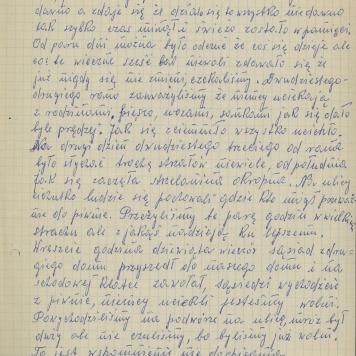 dawno a zdaje się że działo się to wszystko niedawno
tak szybko czas minął i świeżo zostało w pamięci.
Od paru dni można było odczuć że coś się dzieje ale
że te wieczne sześć lat niewoli zdawało się że
już nigdy się nie zmieni, czekaliśmy. Dwudziestego-
drugiego rano zauważyliśmy że niemcy uciekają
z rodzinami, pieszo, wozami, sankami jak się dało
byle prędzej. Jak się ściemniło wszystko ucichło.
Na drugi dzień dwudziestego trzeciego od rana
było słychać trochę strzałów niewiele, od południa
jak się zaczęła strzelanina okropna. Na ulicy
ludzie się pochowali gdzie kto mógł
nie do piwnic. Przeżyliśmy te parę godzin w wielkim
strachu ale z jakąś nadzieją ku lepszemu.
Wreszcie godzina dziewiąta wieczór sąsiad z dru-
giego domu przyszedł do naszego domu i na
schodowej klatce zawołał, sąsiedzi wychodźcie
z piwnic, niemcy uciekli jesteśmy wolni.
Powychodziliśmy na podwórze na ulicę, mróz był
duży ale nie czuliśmy, bo byliśmy już wolni.
To jest wspomnienie nie do